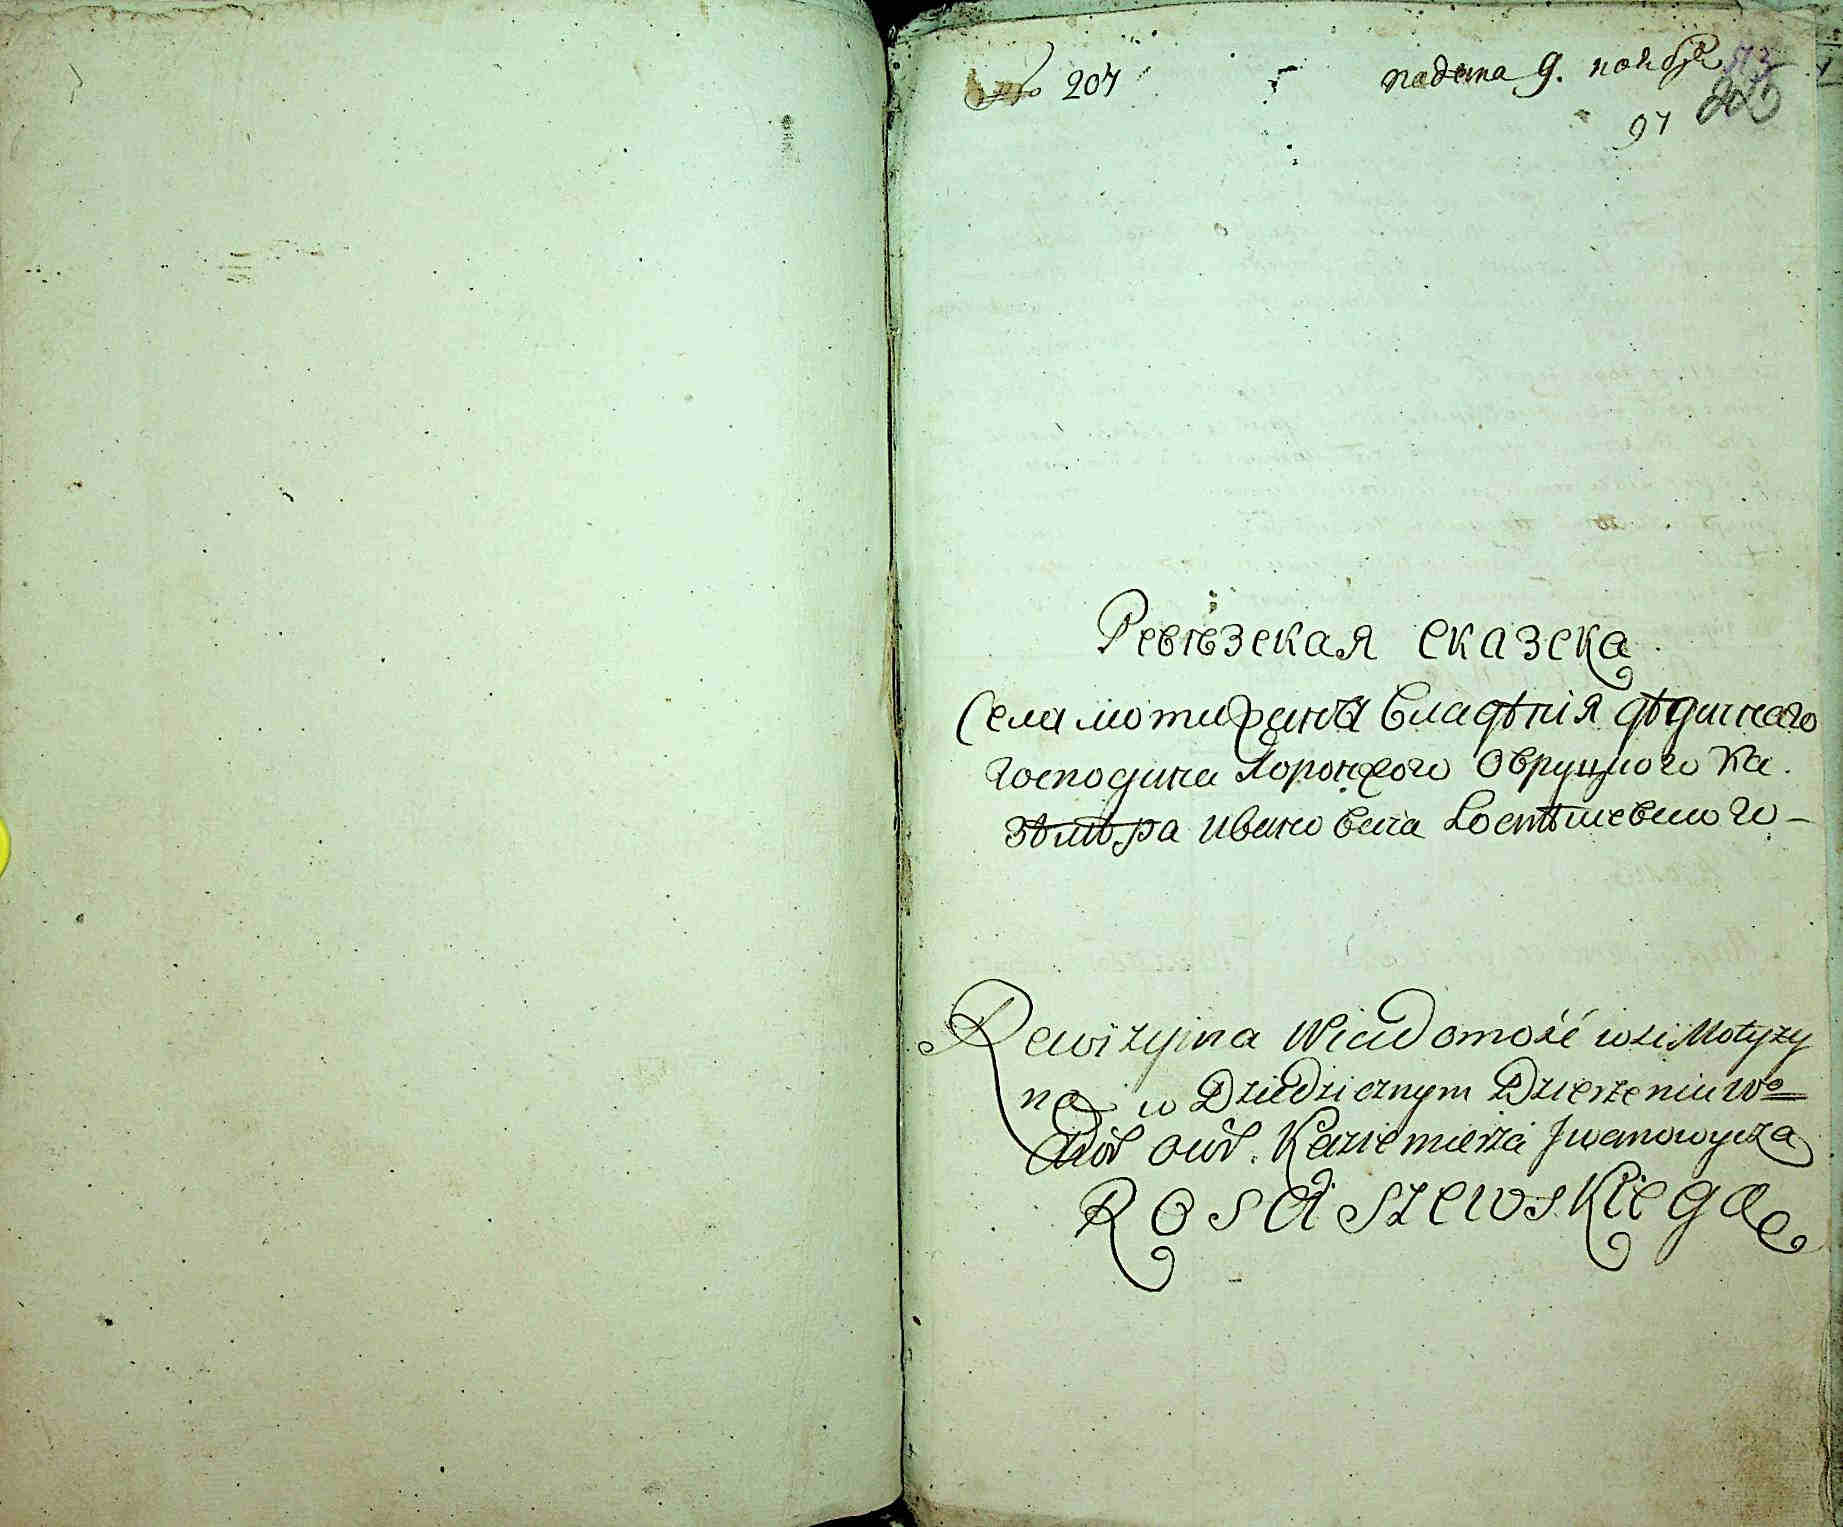 № 207
подана 9. ноября
97
Ревѣзская сказска
Села мотыжина владѣнія дѣдичнаго
господина Хоронжого Овруцкого Ка-
зѣмѣра Ивановича Росцѣшевского
Rewizyina Wiadomość wsi Motyży
na w Dziedzicznym Dzierżeniu Wo=
Owr. Kazimierza Jwanowycza
Rosciszewskiego